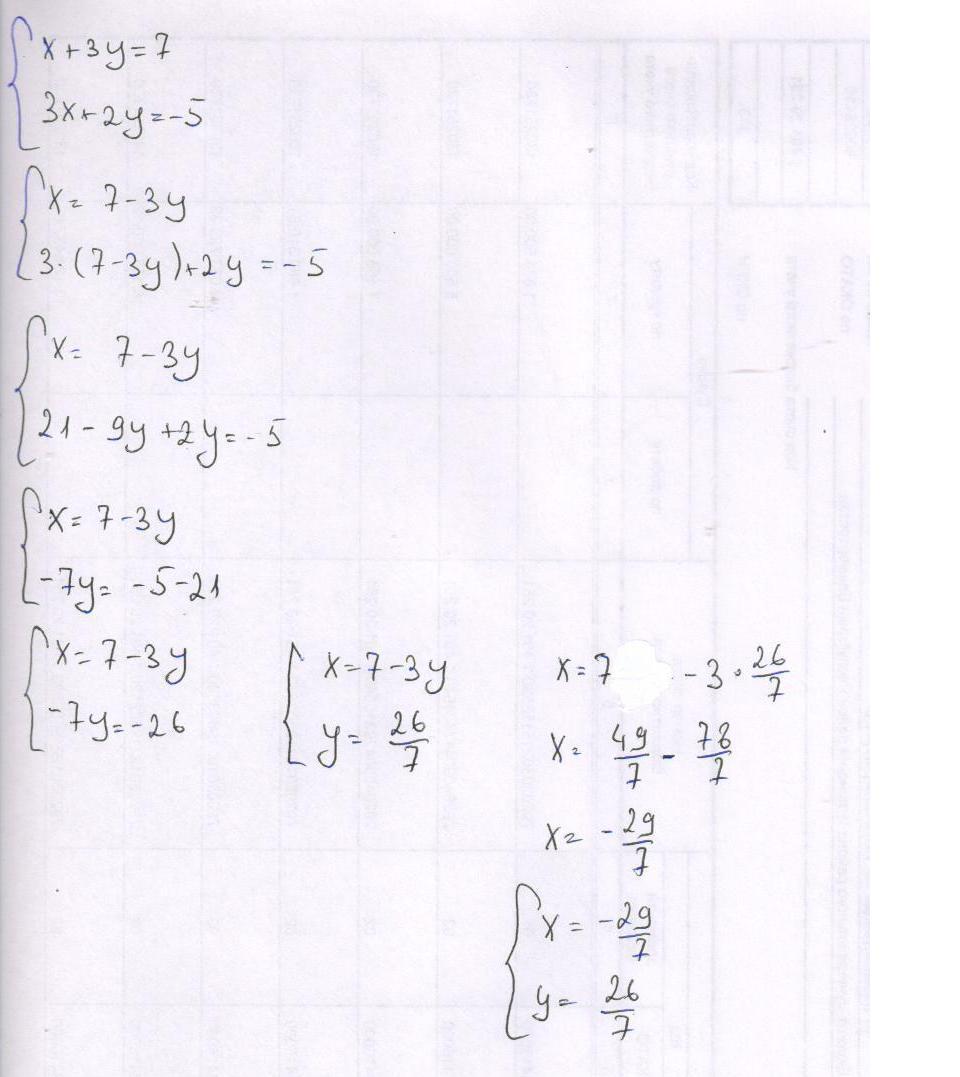 x+3y=7
3x+2y=-5
x= 7-3y
3·(7-3y)+2y =-5
x= 7-3y
21-9y+2y=-5
x=7-3y
-7y= -5-21
x=7-3y
-7y=-26
x=7-3y
y= 26/7
x=7 -3·26/7
x= 49/7 - 78/7
x= -29/7
x= -29/7
y= 26/7